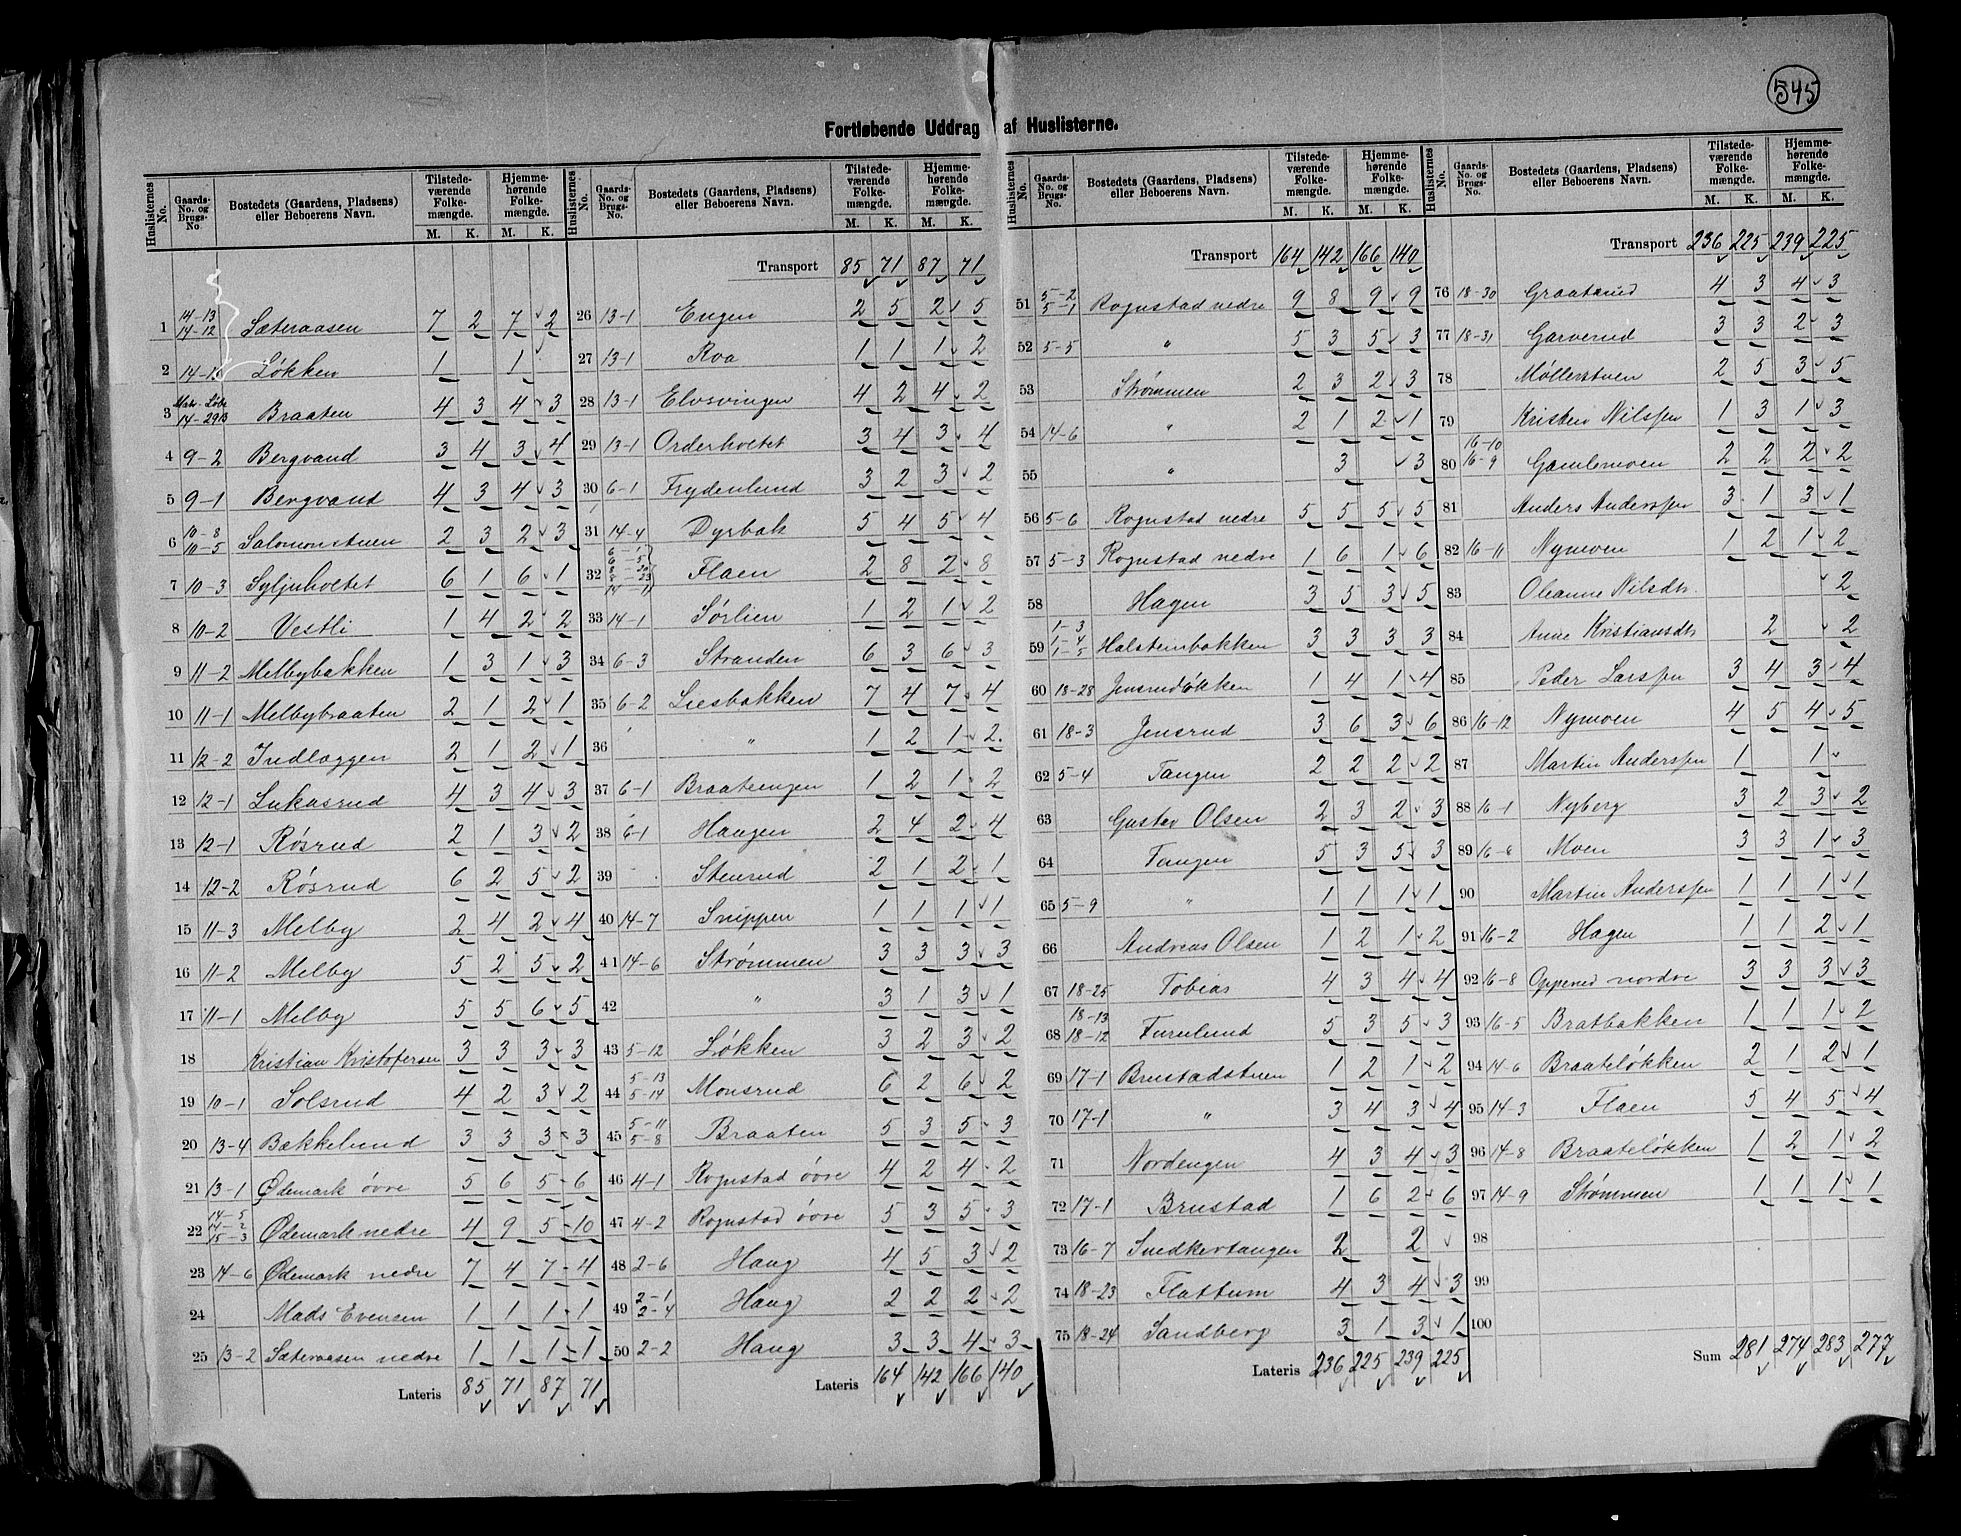 545
Fortløbende Uddrag af Huslisterne.
Huslisternes No. | Gaards-No. og Brugs-No | Bostedets (Gaardens, Pladsens) eller Beboerens Navn. | Tilstedeværende Folkemængde. M. K. | Hjemmehørende Folkemængde. M. K.
1 14-13 14-12 Sæteraasen 7 2 7 2
2 Løkken 1 1
3 Matr. Løbe 14-29B Braaten 4 3 4 3
4 9-2 Bergvand 3 4 3 4
5 9-1 Bergvand 4 3 4 3
6 10-8 10-5 Salomonstuen 2 3 2 3
7 10-3 Syljuholtet 6 1 6 1
8 10-2 Vestli 1 4 2 2
9 11-2 Melbybakken 1 3 1 3
10 11-1 Melbybraaten 2 1 2 1
11 12-2 Indlæggen 2 1 2 1
12 12-1 Lukasrud 4 3 4 3
13 12-1 Røsrud 2 1 3 2
14 12-2 Røsrud 6 2 5 2
15 11-3 Melby 2 4 2 4
16 11-2 Melby 5 2 5 2
17 11-1 Melby 5 5 6 5
18 Kristian Kristofersen 3 3 3 3
19 10-1 Solsrud 4 2 3 2
20 13-4 Bakkelund 3 3 3 3
21 13-1 Ødemark övre 5 6 5 6
22 14-5 14-2 15-3 Ødemark nedre 4 9 5 10
23 14-6 Ødemark nedre 7 4 7 4
24 Mads Evensen 1 1 1 1
25 13-2 Sæteraasen nedre 1 1 1 1
Lateris 85 71 87 71
Huslisternes No. | Gaards-No. og Brugs-No. | Bostedets (Gaardens, Pladsens) eller Beboerens Navn. | Tilstedeværende Folkemængde. M. K. | Hjemmehørende Folkemængde. M. K.
Transport 85 71 87 71
26 13-1 Engen 2 5 2 5
27 13-1 Roa 1 1 1 2
28 13-1 Elvsvingen 4 2 4 2
29 13-1 Orderholtet 3 4 3 4
30 6-1 Frydenlund 3 2 3 2
31 14-4 Dyrbak 5 4 5 4
32 Flaen 2 8 2 8
33 14-1 Sørlien 1 2 1 2
34 6-3 Stranden 6 3 6 3
35 6-2 Liesbakken 7 4 7 4
36 " 1 2 1 2
37 6-1 Braatengen 1 2 1 2
38 6-1 Haugen 2 4 2 4
39 Stenrud 2 1 2 1
40 14-7 Snippen 1 1 1 1
41 14-6 Strømmen 3 3 3 3
42 " 3 1 3 1
43 5-12 Løkken 3 2 3 2
44 5-13 5-14 Monsrud 6 2 6 2
45 5-11 5-8 Braaten 5 3 5 3
46 4-1 Rognstad övre 4 2 4 2
47 4-2 Rognstad övre 5 3 5 3
48 2-6 Haug 4 5 3 2
49 2-1 2-4 Haug 2 2 2 2
50 2-2 Haug 3 3 4 3
Lateris 164 142 166 140
Huslisternes No. | Gaards-No. og Brugs-No. | Bostedets (Gaardens, Pladsens) eller Beboerens Navn. | Tilstedeværende Folkemængde. M. K. | Hjemmehørende Folkemængde. M. K.
Transport 164 142 166 140
51 5-2 5-1 Rognstad nedre 9 8 9 9
52 5-5 " 5 3 5 3
53 Strømmen 2 3 2 3
54 14-6 " 2 1 2 1
55 " 3 3
56 5-6 Rognstad nedre 5 5 5 5
57 5-3 Rognstad nedre 1 6 1 6
58 Hagen 3 5 3 5
59 1-3 1-4 1-5 Holsteinbakken 3 3 3 3
60 18-28 Jensrudløkken 1 4 1 4
61 18-3 Jensrud 3 6 3 6
62 5-4 Tangen 2 2 2 2
63 Gustav Olsen 2 3 2 3
64 Tangen 5 3 5 3
65 5-9 " 1 1 1 1
66 Andreas Olsen 1 2 1 2
67 18-25 Tobias 4 3 4 4
68 18-13 18-12 Furulund 5 3 5 3
69 17-1 Brustadstuen 1 2 1 2
70 17-1 " 3 4 3 4
71 Nordengen 4 3 4 3
72 17-1 Brustad 1 6 2 6
73 16-7 Snedkertangen 2 2
74 18-23 Flattum 4 3 4 3
75 18-24 Sandberg 3 1 3 1
Lateris 236 225 239 225
Huslisternes No. | Gaards-No. og Brugs-No. | Bostedets (Gaardens, Pladsens) eller Beboerens Navn. | Tilstedeværende Folkemængde. M. K. | Hjemmehørende Folkemængde. M. K.
Transport 236 225 239 225
76 18-30 Graatarud 4 3 4 3
77 18-31 Garverud 3 3 2 3
78 Møllerstuen 2 5 3 5
79 Kristen Nilssen 1 3 1 3
80 16-10 16-9 Gamlemoen 2 2 2 2
81 Anders Anderssen 3 1 3 1
82 16-11 Nymoen 1 2 1 2
83 Oleanne Nilsdtr. 2
84 Anne Kristiansdtr 2 2
85 Peder Larssen 3 4 3 4
86 16-12 Nymoen 4 5 4 5
87 Martin Anderssen 1 1
88 16-1 Nyberg 3 2 3 2
89 16-6 Moen 3 3 1 3
90 Martin Anderssen 1 1 1 1
91 16-2 Hagen 1 1 2 1
92 16-8 Oppenod nordre 3 3 3 3
93 16-5 Bratbakken 1 1 1 2
94 14-6 Braateløkken 2 1 2 1
95 14-3 Flaen 5 4 5 4
96 14-8 Braateløkken 1 2 1 2
97 14-9 Strømmen 1 1 1 1
98
99
100
Sum 281 274 283 277